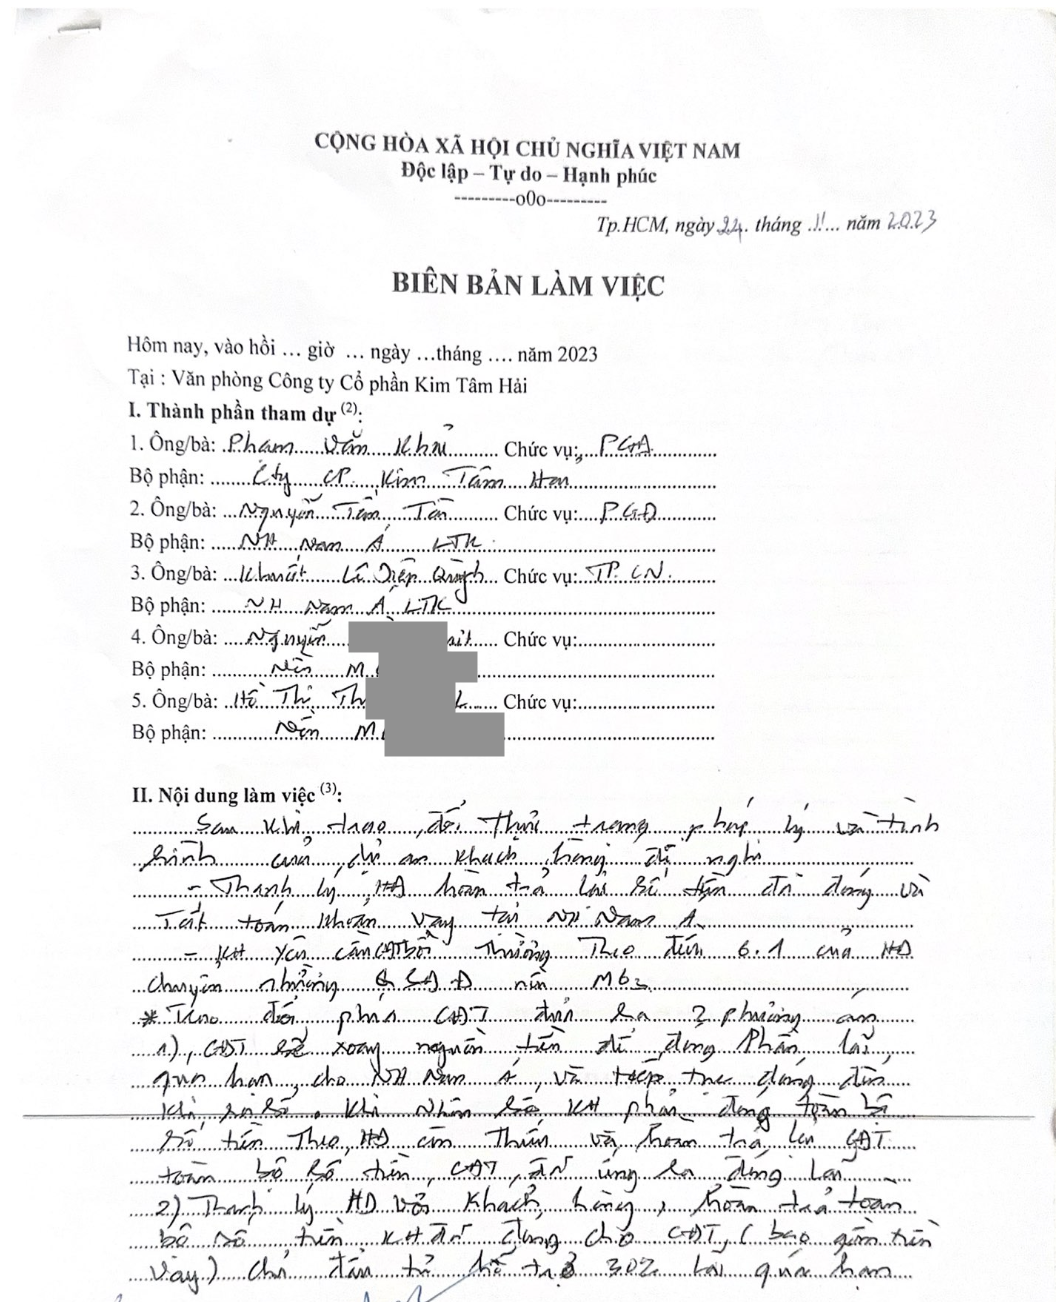 CỘNG HÒA XÃ HỘI CHỦ NGHĨA VIỆT NAM
Độc lập – Tự do – Hạnh phúc
---------o0o---------
Tp.HCM, ngày 24 tháng 11 năm 2023
BIÊN BẢN LÀM VIỆC
Hôm nay, vào hồi ... giờ ... ngày ...tháng .... năm 2023
Tại : Văn phòng Công ty Cổ phần Kim Tâm Hải
I. Thành phần tham dự (2):
1. Ông/bà: Phạm Văn Khải Chức vụ: PGĐ
Bộ phận: Cty CP Kim Tâm Hải
2. Ông/bà: Nguyễn Tấn Chức vụ: PGĐ
Bộ phận: NH Nam Á LTK
3. Ông/bà: Khuất Lê Diệp Quỳnh Chức vụ: TP.CN
Bộ phận: NH Nam Á LTK
4. Ông/bà: Nguyễn Chức vụ:
Bộ phận: Nền M
5. Ông/bà: Hồ Thị Th Chức vụ:
Bộ phận: Nền M
II. Nội dung làm việc (3):
Sau khi trao đổi thực trạng pháp lý và tình
hình của dự án khách hàng đề nghị
- Thanh lý HĐ hoàn trả lại số tiền đã đóng và
Tất toán khoản vay tại NH Nam Á.
- KH yêu cầu CĐT bồi thường Theo điều 6.1 của HĐ
chuyển nhượng QSDĐ nền M63
* Trao đổi phía CĐT đưa ra 2 phương án
1) CĐT sẽ xoay nguồn tiền để đóng Phần lãi
quá hạn cho NH Nam Á, và tiếp tục đóng đến
khi ra sổ. Khi nhận sổ KH phải đóng toàn bộ
số tiền Theo HĐ còn thiếu và hoàn trả lại CĐT
toàn bộ số tiền CĐT đã ứng ra đóng lãi
2) Thanh lý HĐ với Khách hàng, hoàn trả toàn
bộ số tiền KH đã đóng cho CĐT, (bao gồm tiền
vay) chủ đầu tư hỗ trợ 30% lãi quá hạn